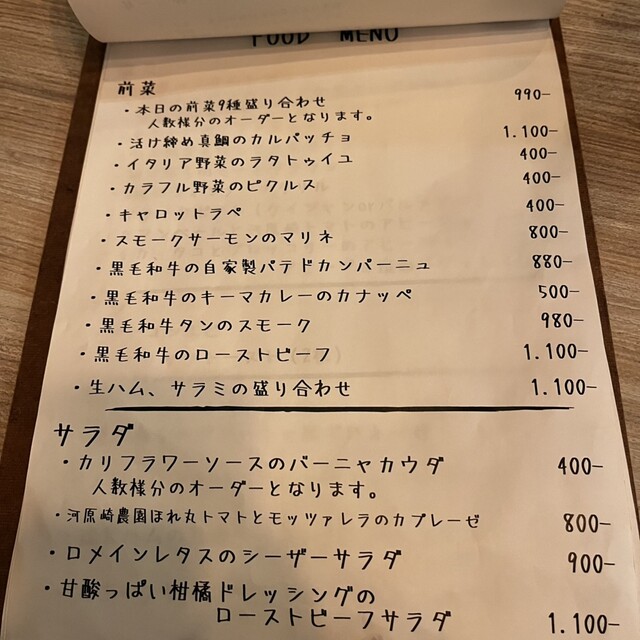 FOOD MENU
前菜
・本日の前菜9種盛り合わせ 990-
人数様分のオーダーとなります。
・活け締め真鯛のカルパッチョ 1.100-
・イタリア野菜のラタトゥイユ 400-
・カラフル野菜のピクルス 400-
・キャロットラペ 400-
・スモークサーモンのマリネ 800-
・黒毛和牛の自家製パテドカンパーニュ 880-
・黒毛和牛のキーマカレーのカナッペ 500-
・黒毛和牛タンのスモーク 980-
・黒毛和牛のローストビーフ 1.100-
・生ハム、サラミの盛り合わせ 1.100-
サラダ
・カリフラワーソースのバーニャカウダ 400-
人数様分のオーダーとなります。
・河原崎農園ほれ丸トマトとモッツァレラのカプレーゼ 800-
・ロメインレタスのシーザーサラダ 900-
・甘酸っぱい柑橘ドレッシングの
ローストビーフサラダ 1.100-